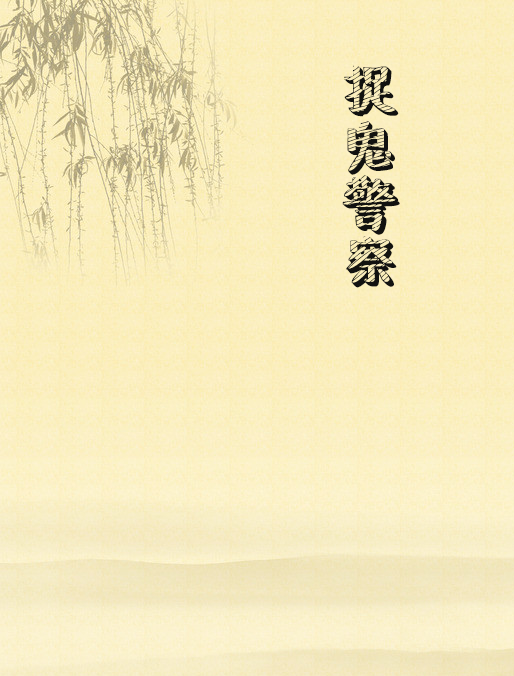 捉鬼警察